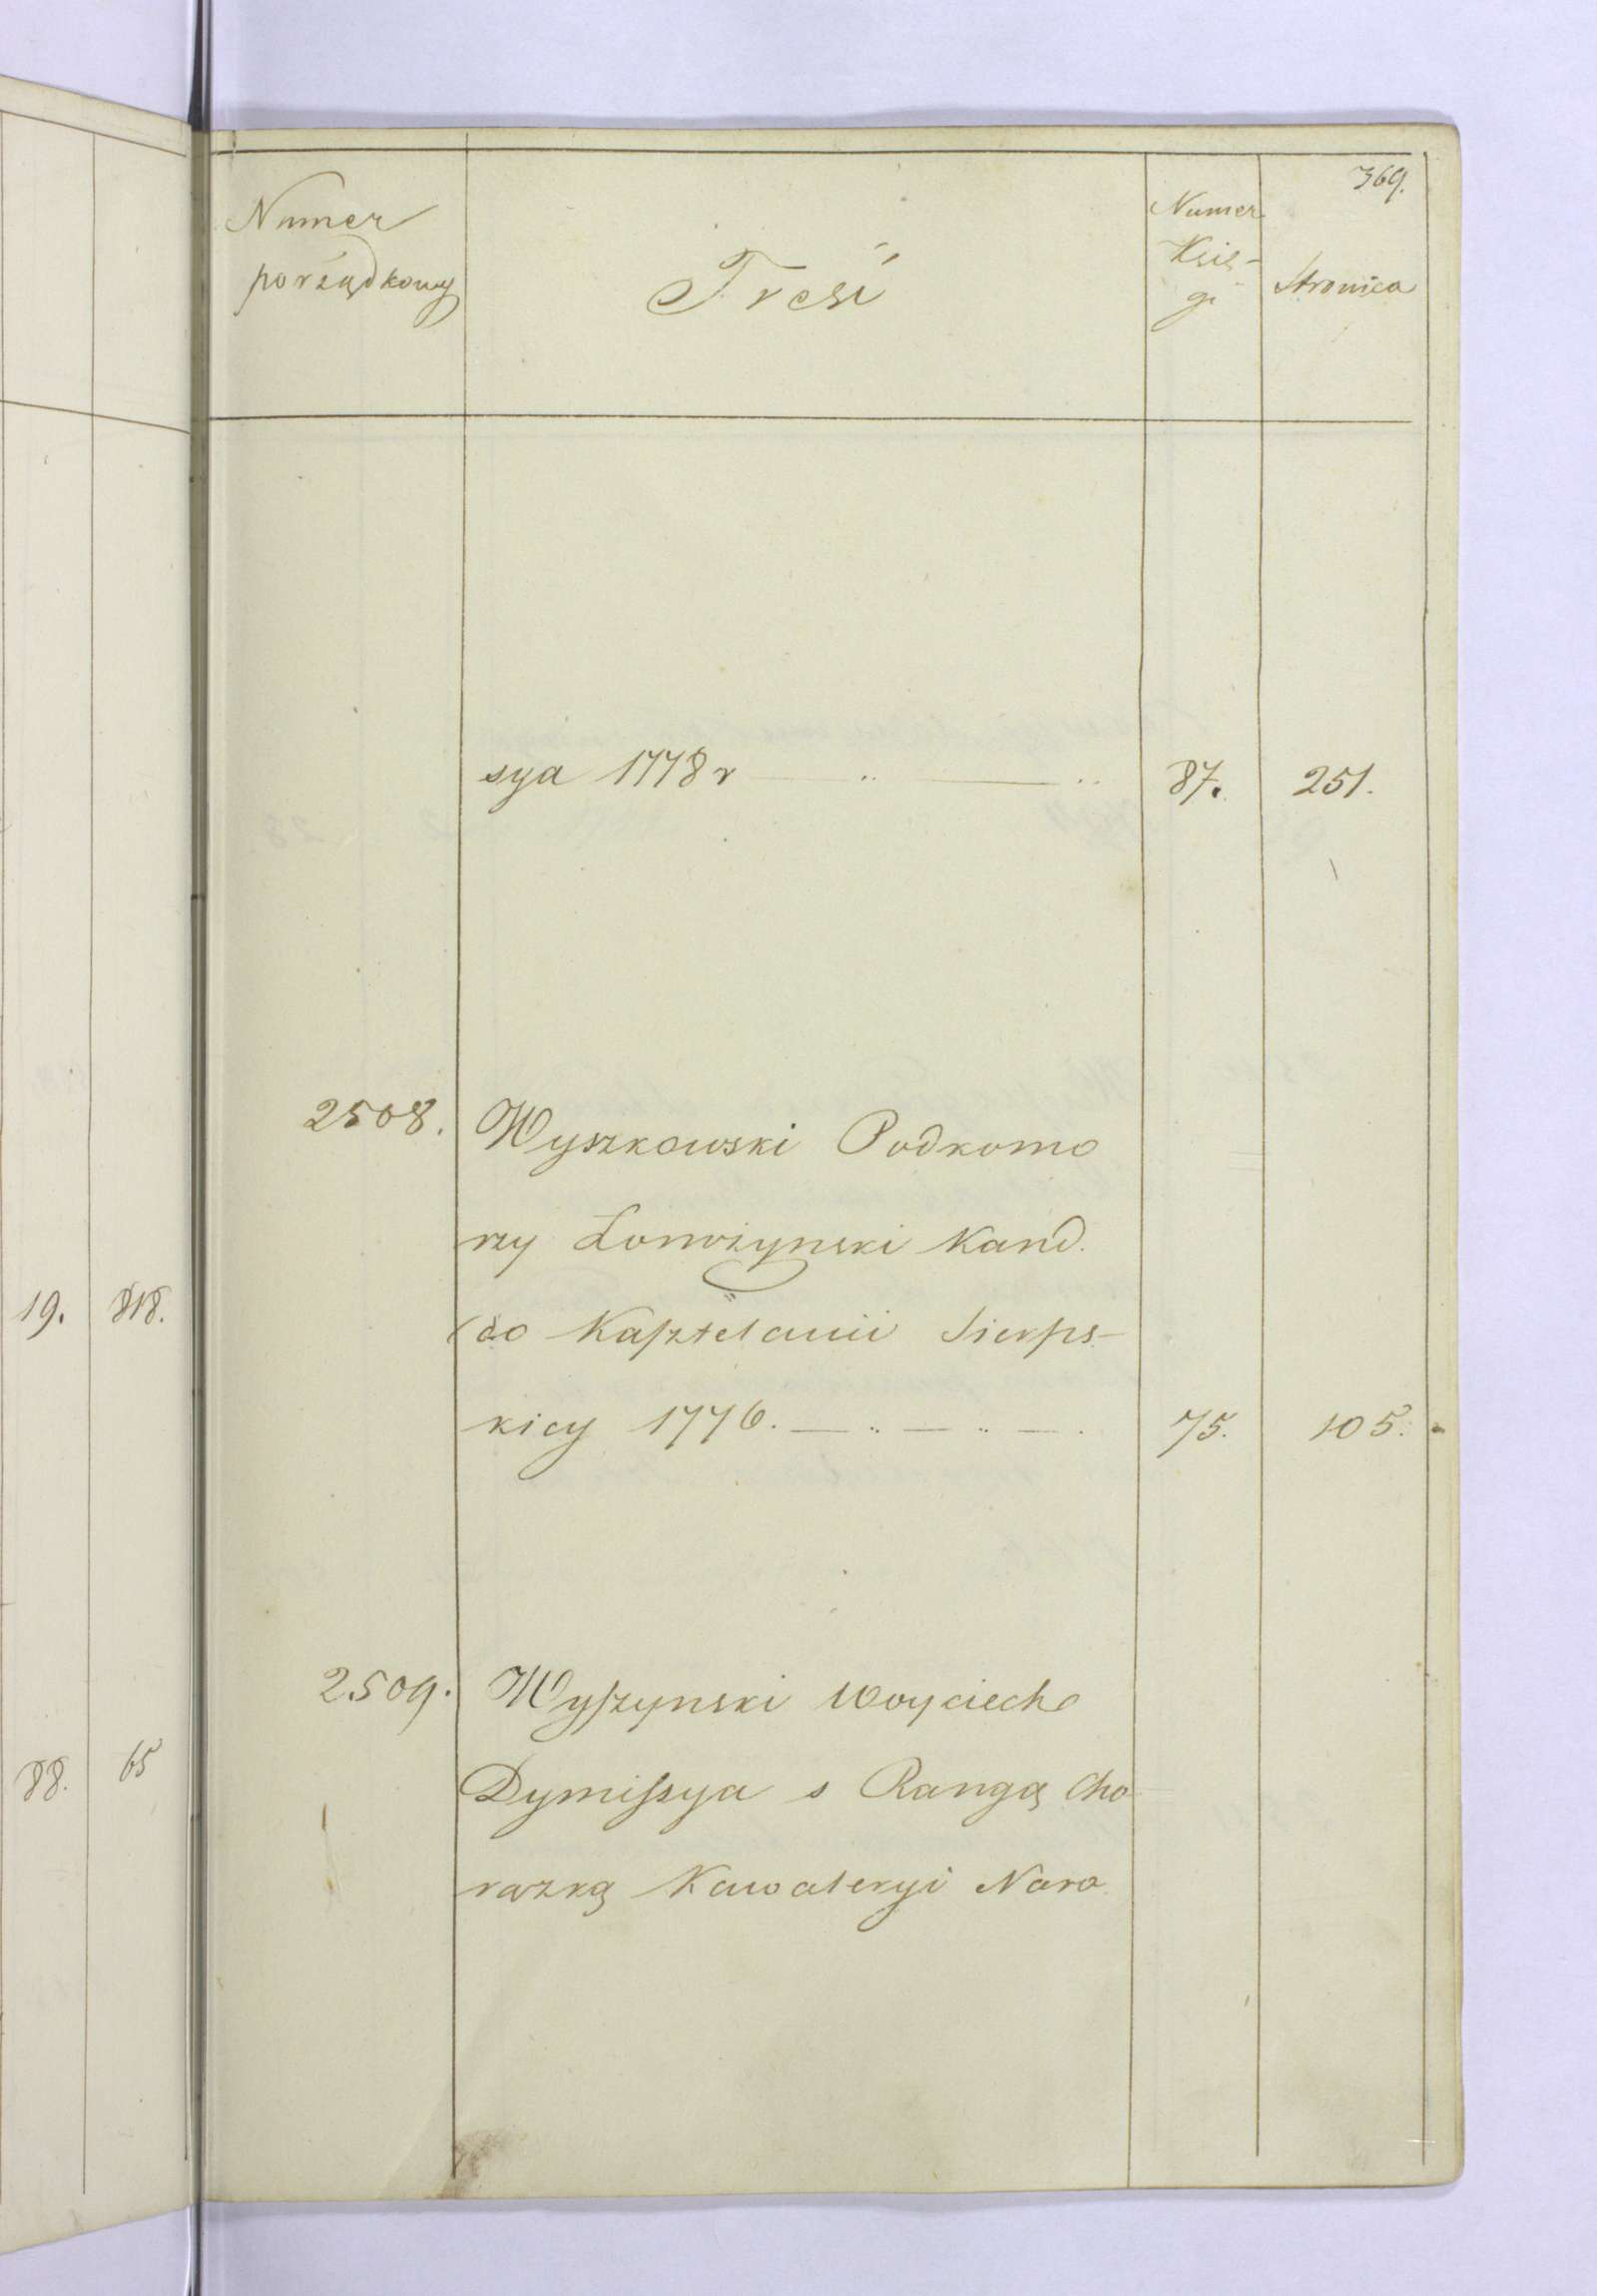 369.
Numer
porządkowy
Treść
Numer
Księ-
gi
Stronica
sya 1778 r — .. — .. 87. 251.
2508. Wyszkowski Podkomo
rzy Łomżynski Kand.
do Kasztelanii Sierps-
kiey 1776. — .. — .. — . 75. 105.
19. 818.
2509. Wyszynski Woyciech
Dymissya s Rangą Cho
rązką Kawaleryi Naro
88. 65